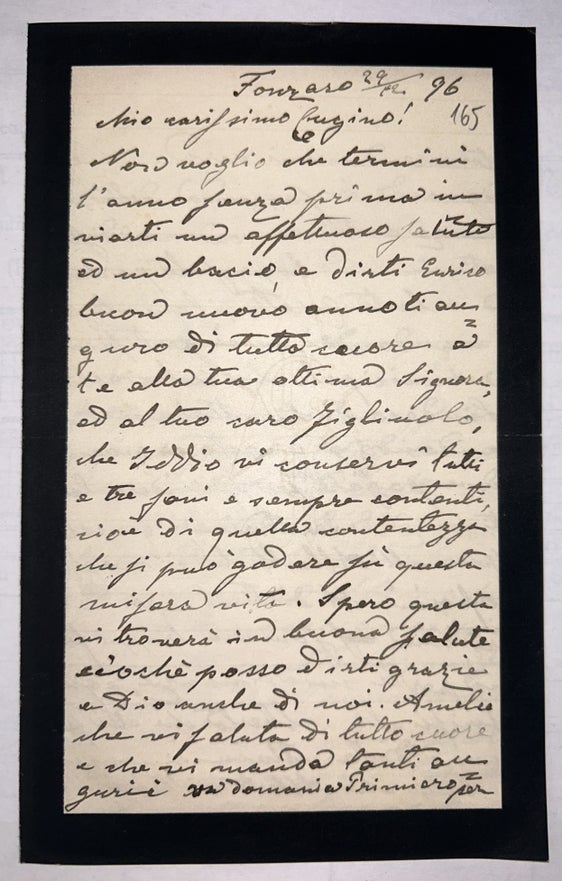 Fonzaso 29/12 96
165
Mio carissimo Cugino!
Non voglio che termini
l'anno senza prima in
viarti un affettuoso saluto
ed un bacio, e dirti Enrico
buon nuovo anno ti au=
guro di tutto cuore a
te alla tua ottima Signora,
ed al tuo caro Figliuolo,
che Iddio vi conservi tutti
e tre sani e sempre contenti,
cioè di quella contentezza
che si può godere su questa
misera vita. Spero questa
vi troverà in buona salute
ciochè posso dirti grazie
a Dio anche di noi. Amelie
che vi saluta di tutto cuore
e che vi manda tanti au=
gurii va domani a Primiero per